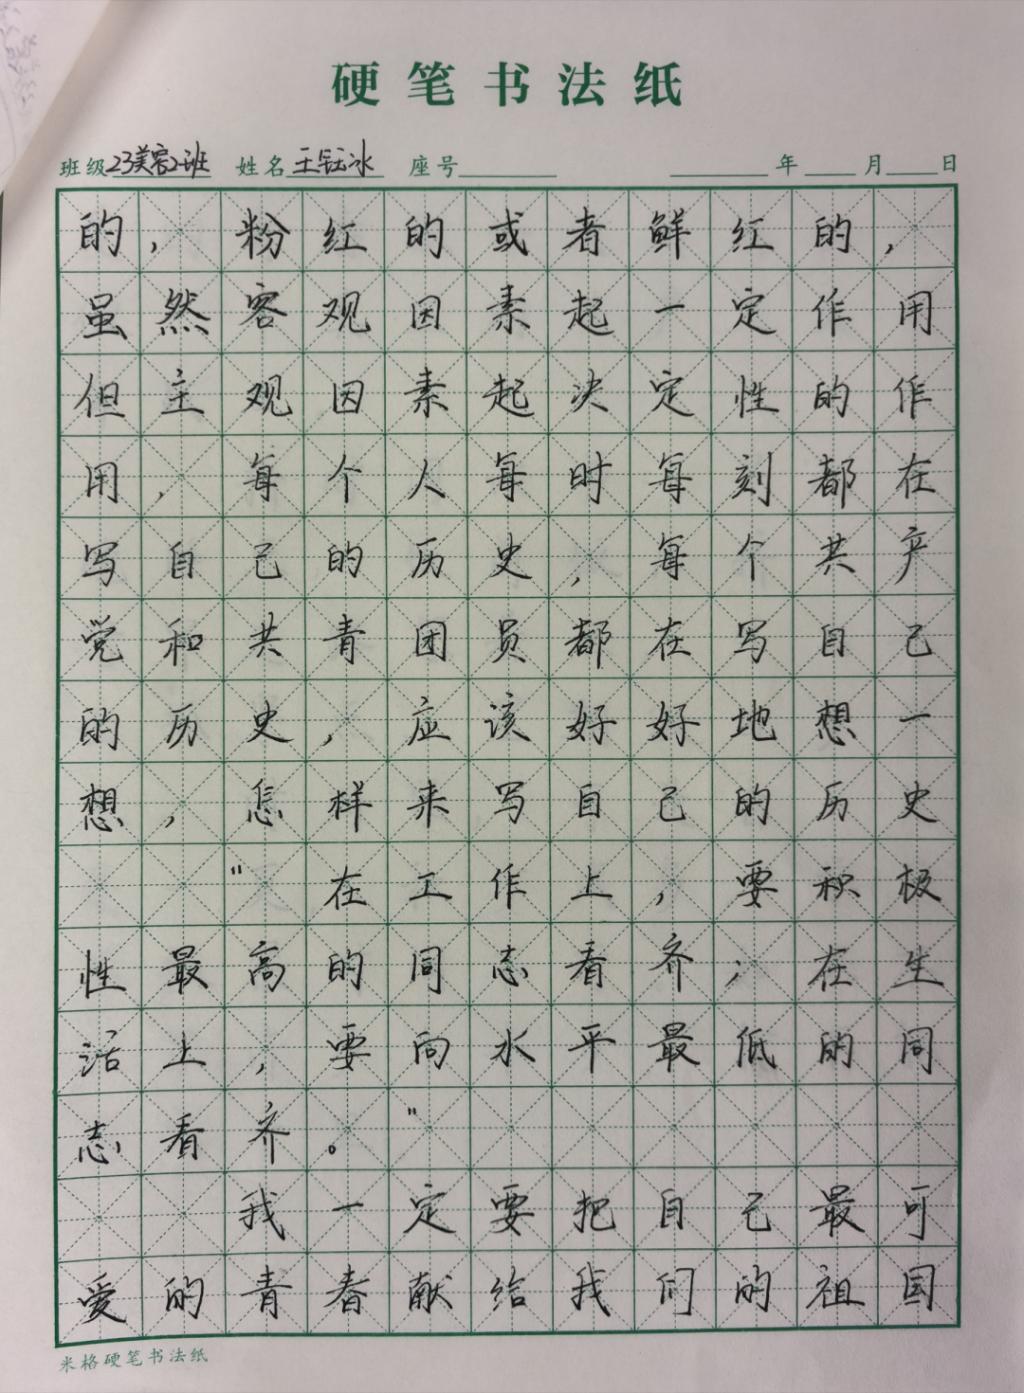 硬笔书法纸
班级23美容2班 姓名王钰冰 座号 年 月 日
的，粉红的或者鲜红的，
虽然客观因素起一定作用
但主观因素起决定性的作
用，每个人每时每刻都在
写自己的历史，每个共产
党和共青团员都在写自己
的历史，应该好好地想一
想，怎样来写自己的历史
"在工作上，要积极
性最高的同志看齐；在生
活上，要向水平最低的同
志看齐。"
我一定要把自己最可
爱的青春献给我们的祖国
米格硬笔书法纸